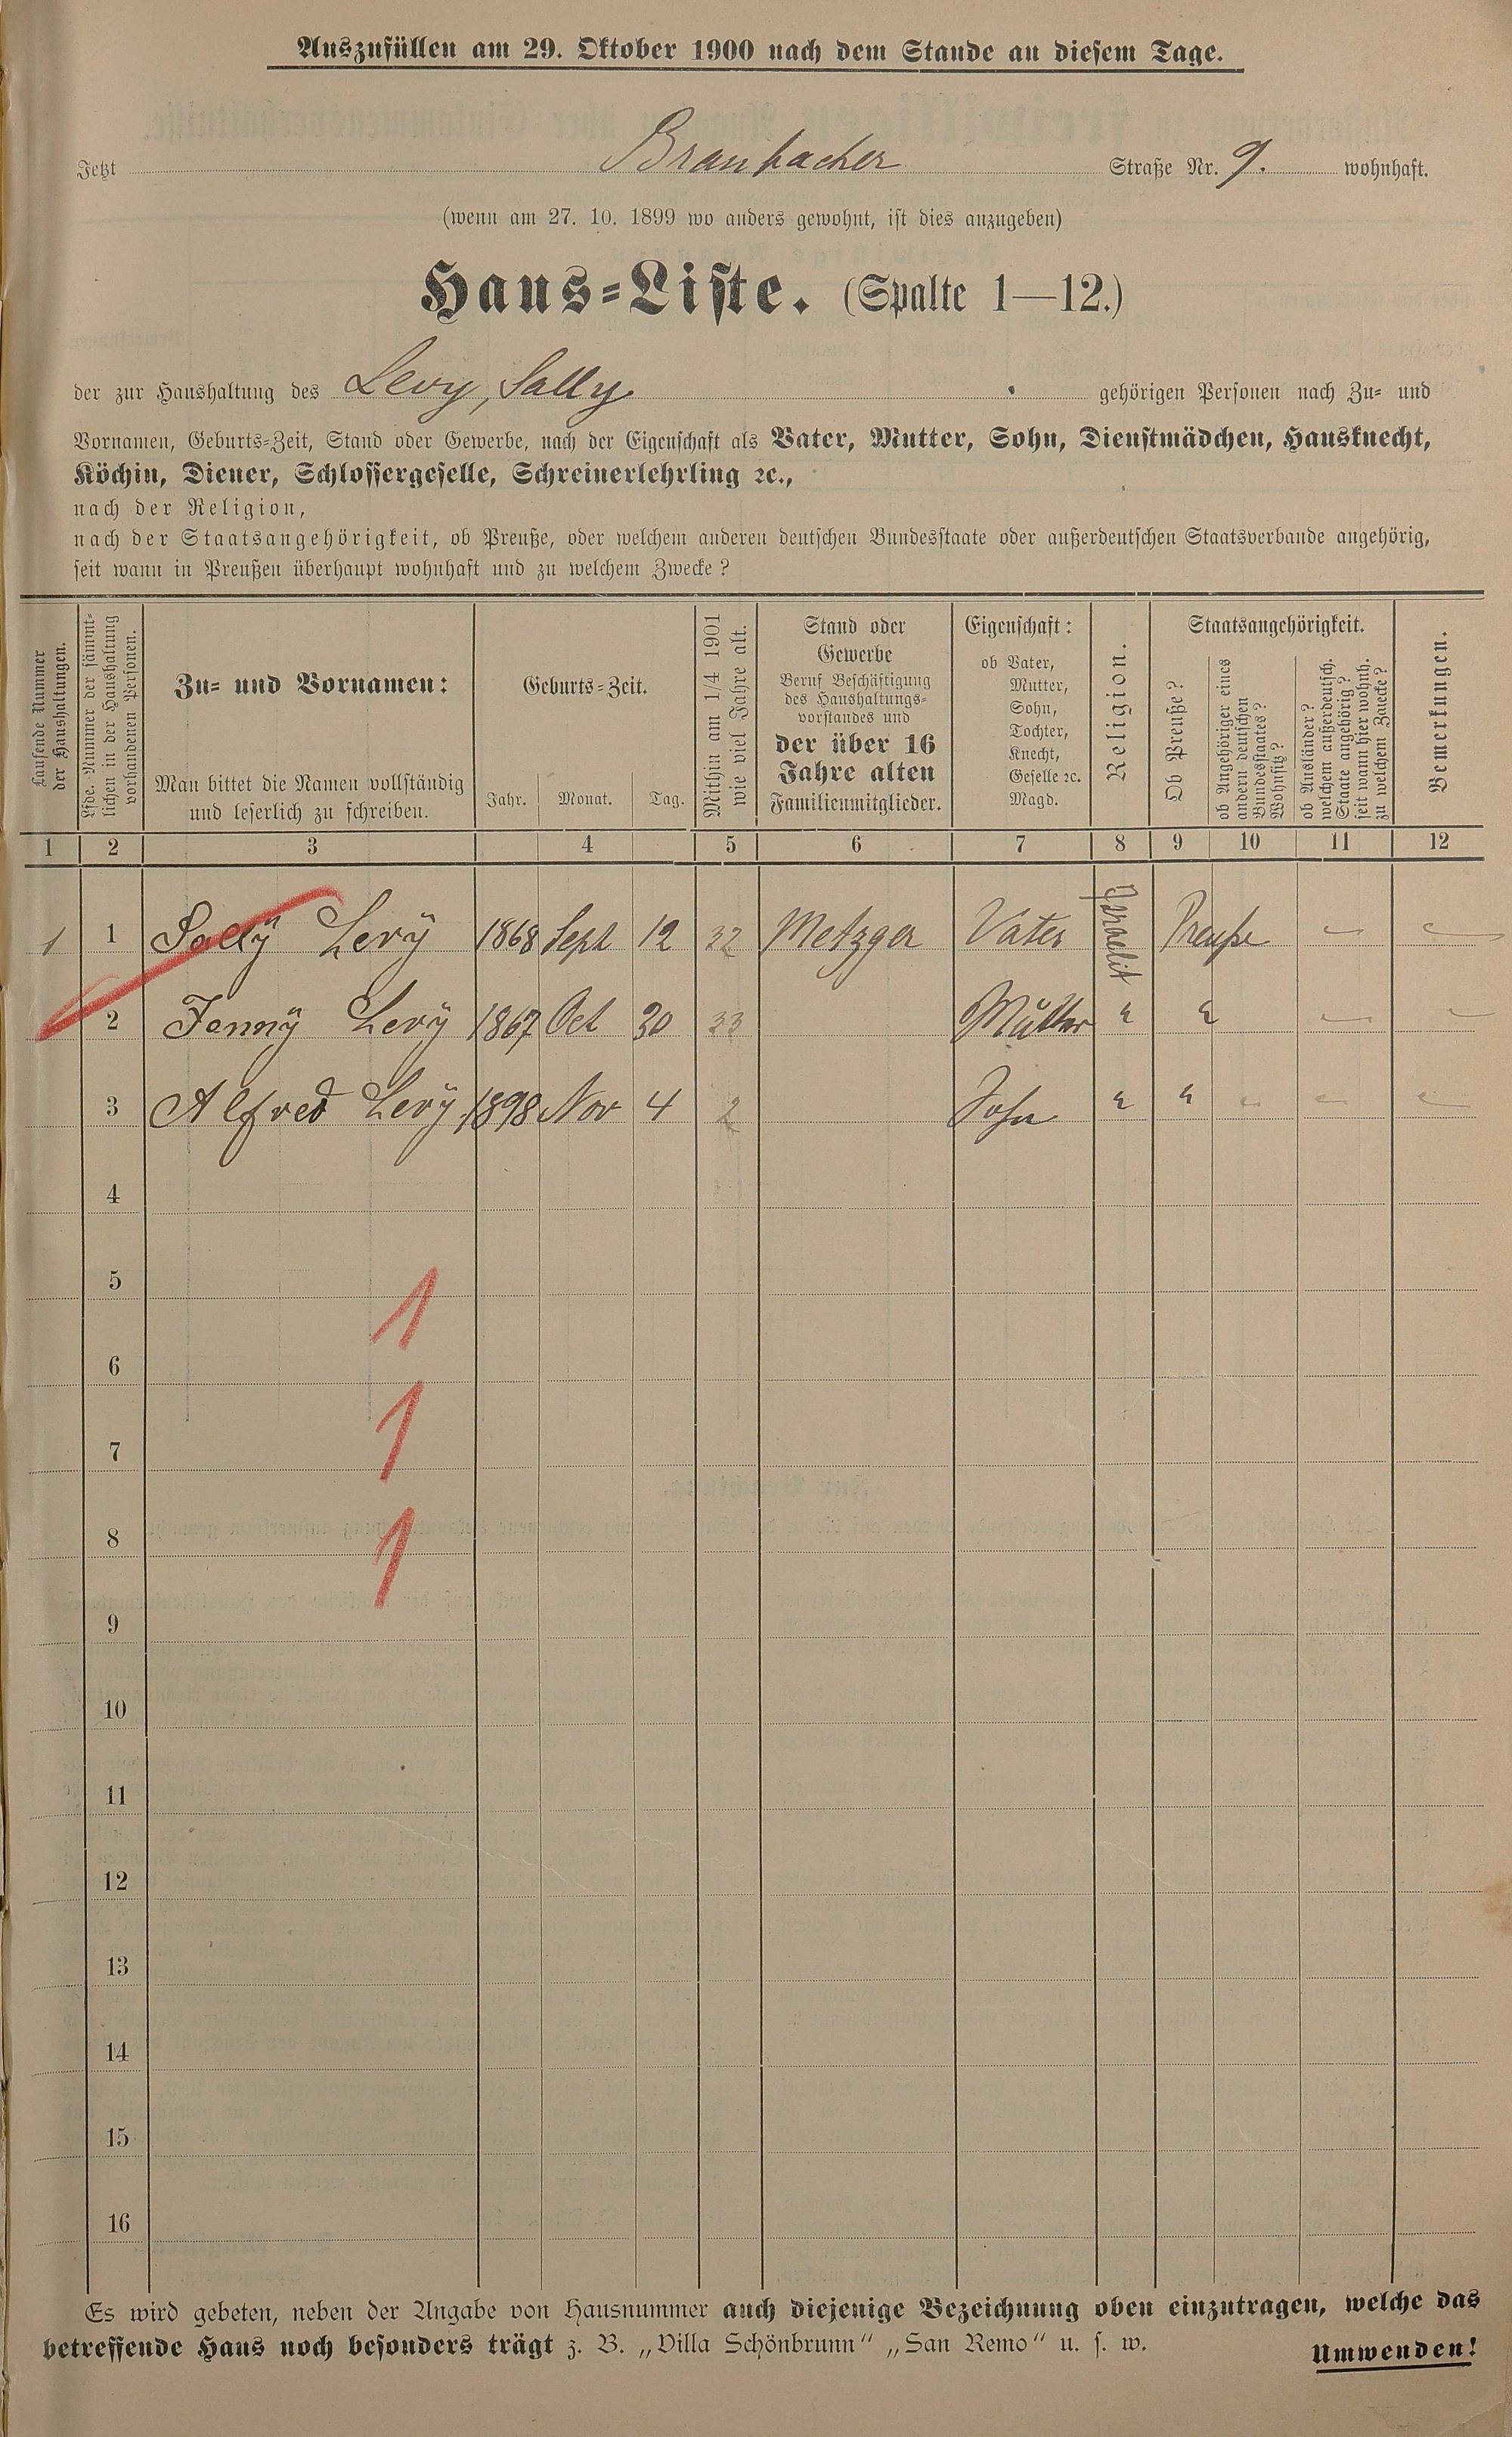 Auszufüllen am 29. Oktober 1900 nach dem Stande an diesem Tage.
Jetzt Braubacher Straße Nr. 9. wohnhaft.
(wenn am 27. 10. 1899 wo anders gewohnt, ist dies anzugeben)
Haus-Liste. (Spalte 1—12.)
der zur Haushaltung des Levy, Sally gehörigen Personen nach Zu- und
Vornamen, Geburts-Zeit, Stand oder Gewerbe, nach der Eigenschaft als Vater, Mutter, Sohn, Dienstmädchen, Hausknecht,
Köchin, Diener, Schlossergeselle, Schreinerlehrling ꝛc.,
nach der Religion,
nach der Staatsangehörigkeit, ob Preuße, oder welchem anderen deutschen Bundesstaate oder außerdeutschen Staatsverbande angehörig,
seit wann in Preußen überhaupt wohnhaft und zu welchem Zwecke?
Laufende Nummer
der Haushaltungen.
Lfde. Nummer der sämmt-
lichen in der Haushaltung
vorhandenen Personen.
Zu- und Vornamen:
Man bittet die Namen vollständig
und leserlich zu schreiben.
Geburts-Zeit.
Jahr. Monat. Tag.
Mithin am 1/4 1901
wie viel Jahre alt.
Stand oder
Gewerbe
Beruf Beschäftigung
des Haushaltungs-
vorstandes und
der über 16
Jahre alten
Familienmitglieder.
Eigenschaft:
ob Vater,
Mutter,
Sohn,
Tochter,
Knecht,
Geselle ꝛc.
Magd.
Religion.
Staatsangehörigkeit.
Ob Preuße?
ob Angehöriger eines
andern deutschen
Bundesstaates?
Wohnsitz?
ob Ausländer?
welchem außerdeutsch.
Staate angehörig?
seit wann hier wohnh.
zu welchem Zwecke?
Bemerkungen.
1 2 3 4 5 6 7 8 9 10 11 12
1 1 Sallÿ Levÿ 1868 Sept 12 32 Metzger Vater Israelit Preuße — —
2 Jennÿ Levÿ 1867 Oct 30 33 Mutter " " — —
3 Alfred Levÿ 1898 Nov 4 2 Sohn " " — — —
4
5
1
6
7
1
8
1
9
10
11
12
13
14
15
16
Es wird gebeten, neben der Angabe von Hausnummer auch diejenige Bezeichnung oben einzutragen, welche das
betreffende Haus noch besonders trägt z. B. „Villa Schönbrunn“ „San Remo“ u. s. w.
Umwenden!